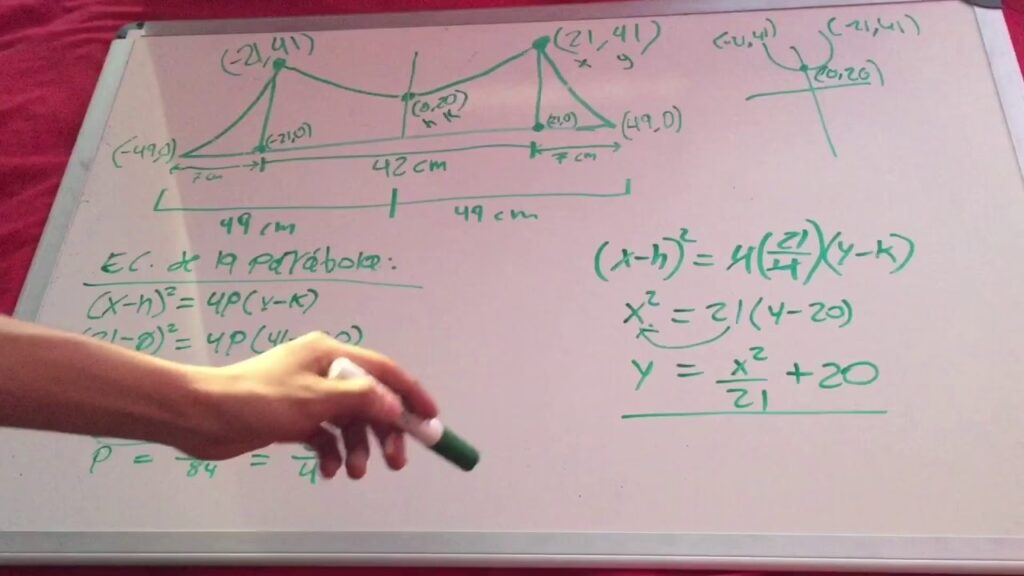 (-21,41)
(21,41)
x y
(0,20)
h k
(-49,0)
(-21,0)
(21,0)
(49,0)
7 cm
42 cm
7 cm
49 cm
49 cm
(-21,41)
(0,20)
Ec. de la Parábola:
(x-h)² = 4P(y-k)
P = 84 = 4
(x-h)² = 4(21/4)(y-k)
x² = 21(y-20)
y = x²/21 + 20